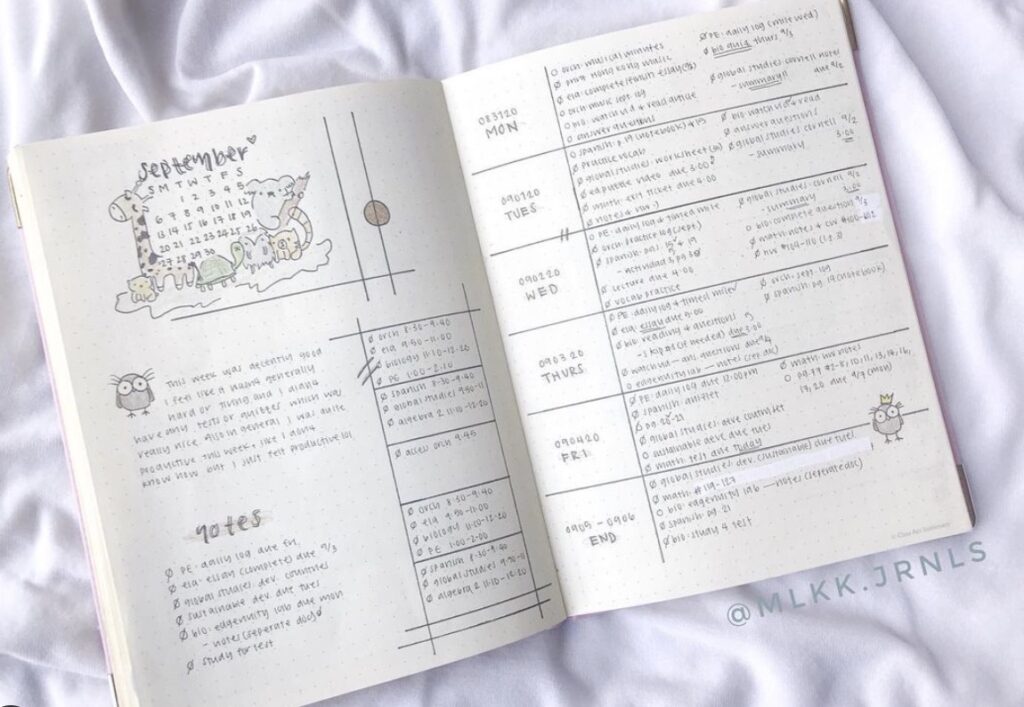 september
S M T W T F S
1 2 3 4 5
6 7 8 9 10 11 12
13 14 15 16 17 18 19
20 21 22 23 24 25 26
27 28 29 30
This week was decently good
I feel like it wasn't generally
hard or tiring and I didn't
have any tests or quizzes which was
really nice. Also in general, I was quite
productive this week, like I don't
know how but I just felt productive lol
notes
PE: daily log due fri.
ela: essay (complete) due 9/3
global studies: dev. countries
sustainable dev. due tues
bio: edgenuity lab due mon
- notes (seperate doc)
study for test
orch 8:30-9:40
ela 9:50-11:00
biology 11:10-12:20
PE 1:00-2:10
spanish 8:30-9:40
global studies 9:50-11
algebra 2 11:10-12:20
access orch 9:45
orch 8:30-9:40
ela 9:50-11:00
biology 11:10-12:20
PE 1:00-2:00
spanish 8:30-9:40
global studies 9:50-11
algebra 2 11:10-12:20
083120
MON
orch: musical minutes
print hong kong music
ela: complete essay
orch: music sept. log
bio: watch vid & read article
answer questions
PE: daily log (mile wed)
bio quiz thurs 9/3
global studies: cornell notes
- summary!! due 9/2
090120
TUES
spanish: p 19 (notebook)
practice vocab
global studies: worksheet
edpuzzle video due 3:00
math: exit ticket due 4:00
bio: watch vid & read
answer questions
global studies: cornell 9/2
- summary 3:00
090220
WED
PE: daily log & timed mile
orch: practice log (sept.)
spanish:
- actividad 3, pg 30
lecture due 4:00
vocab practice
global studies: cornell 9/2
- summary 3:00
bio: complete question 9/3
math: notes & cw #100-102
hw #104-110
090320
THURS
PE: daily log & timed mile
ela: essay due 9:00
bio: reading & questions
- skip #5 (if needed) due 3:00
watch vid — ans. questions due 9/4
edgenuity lab — notes (sep. doc)
orch: sept. log
spanish: pg. 19 (notebook)
090420
FRI
PE: daily log due 12:00pm
spanish:
pg 20-21
global studies:
sustainable dev. due tues
math: test due today
math: hw notes
pg. 99 #2-8, 10, 11, 13, 14, 16,
17, 20 due 9/7 (mon)
0905 - 0906
END
global studies: dev. (sustainable) due tues
math: #119-127
bio: edgenuity lab — notes (seperate doc)
spanish: pg 21
bio: study 4 test
@MLKK.JRNLS